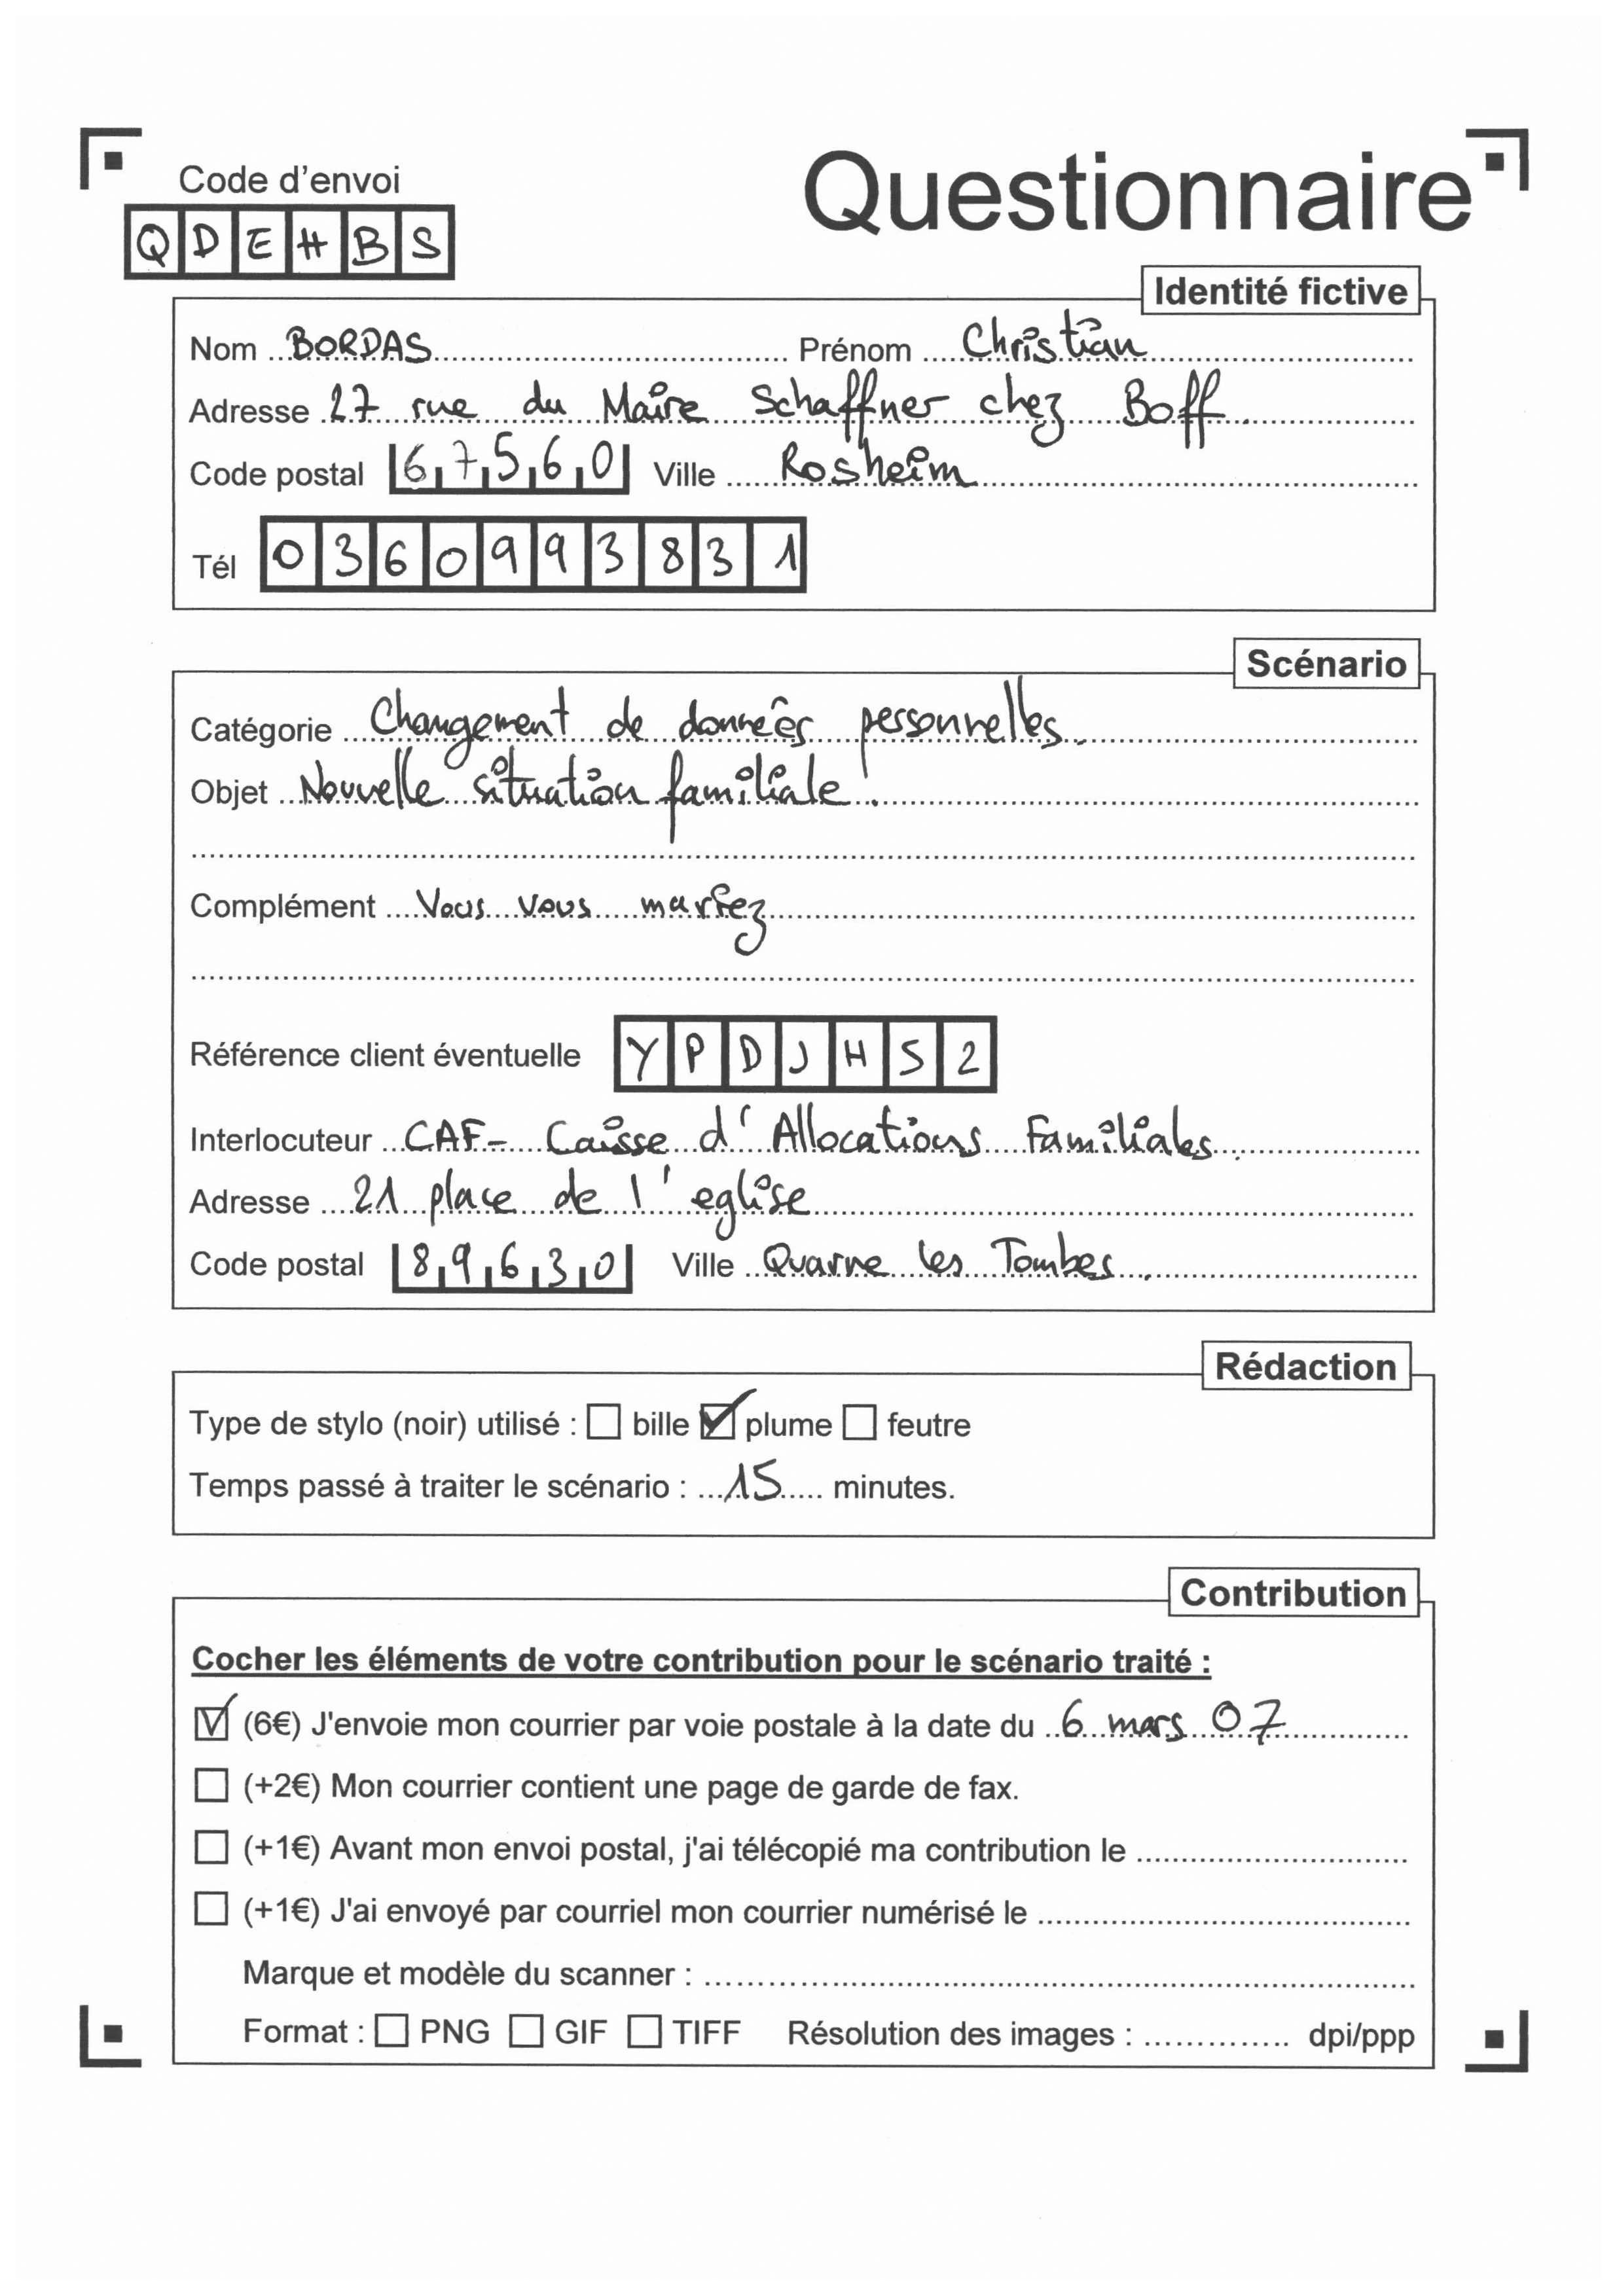 Questionnaire
Code d'envoi
QDEHBS
Identité fictive
Nom BORDAS Prénom Christian
Adresse 27 rue du Maire Schaffner chez Boff
Code postal 67560 Ville Rosheim
Tél 0360993831
Scénario
Catégorie Changement de données personnelles.
Objet Nouvelle situation familiale.
Complément Vous vous mariez
Référence client éventuelle YPDJHS2
Interlocuteur CAF- Caisse d'Allocations Familiales.
Adresse 21 place de l'eglise
Code postal 89630 Ville Quarne les Tombes.
Rédaction
Type de stylo (noir) utilisé : bille plume feutre
Temps passé à traiter le scénario : 15 minutes.
Contribution
Cocher les éléments de votre contribution pour le scénario traité :
(6€) J'envoie mon courrier par voie postale à la date du 6 mars 07
(+2€) Mon courrier contient une page de garde de fax.
(+1€) Avant mon envoi postal, j'ai télécopié ma contribution le
(+1€) J'ai envoyé par courriel mon courrier numérisé le
Marque et modèle du scanner :
Format : PNG GIF TIFF Résolution des images : dpi/ppp